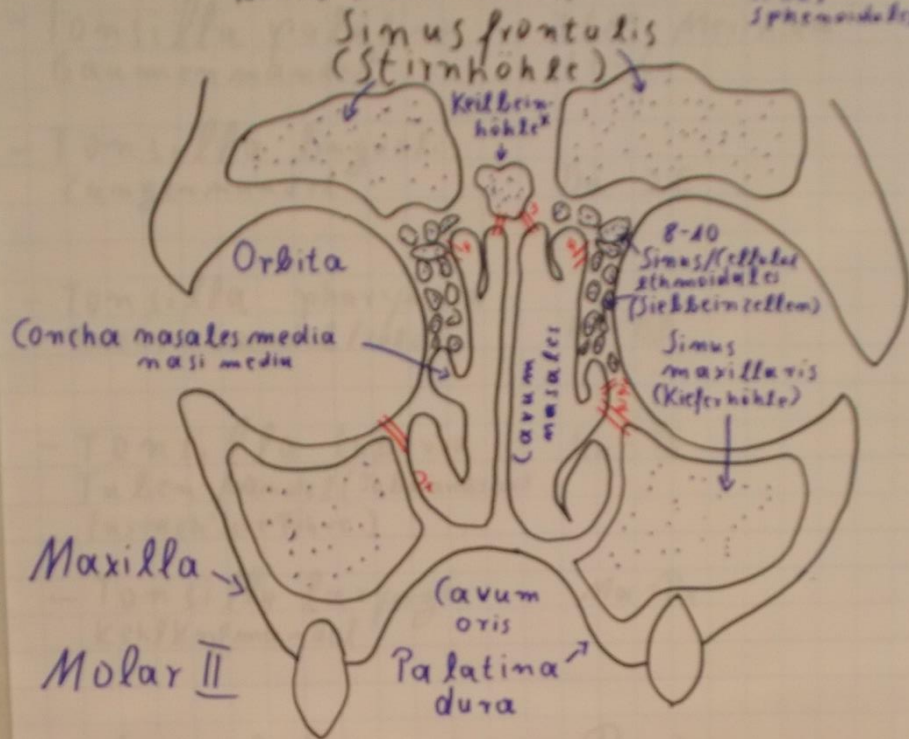 Sphenoidale
Sinus frontalis
(Stirnhöhle)
Keilbein-
höhle*
Orbita
8-10
Sinus/Cellulae
ethmoidales
(Siebbeinzellen)
Concha nasales media
nasi media
Cavum
nasales
Sinus
maxillaris
(Kieferhöhle)
Maxilla
Cavum
oris
Molar II
Palatina
dura